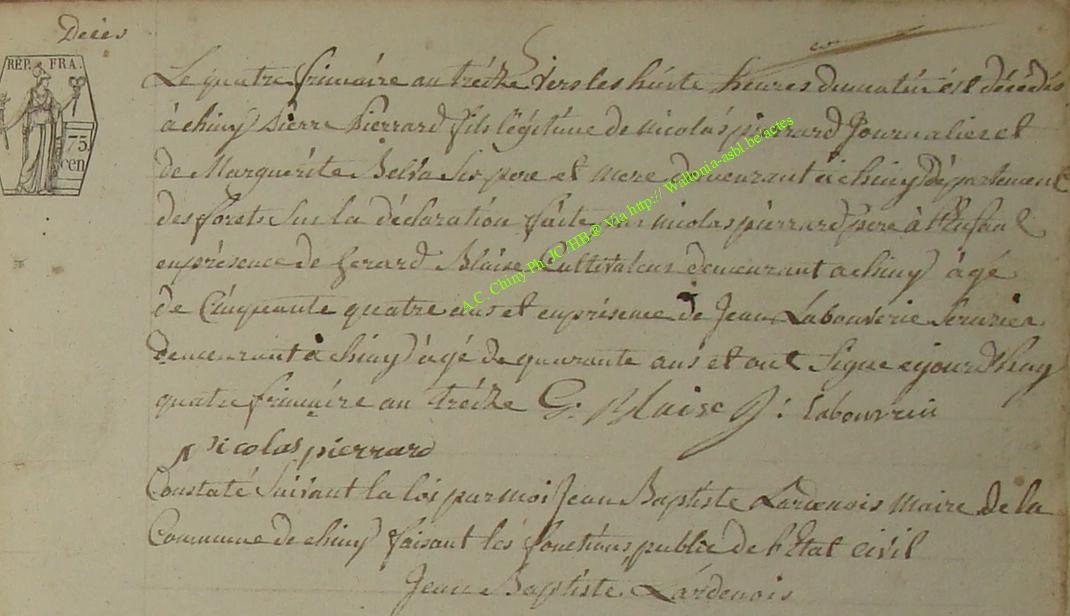 Décés
RÉP. FRA.
75.
cen
Le quatre frimaire an treize vers les huite heures du matin est décédés
à chiny pierre Pierrard fils légitime de nicolas pierrard Journalier et
de Marguérite Belva Ses pere et mere demeurant à chiny département
des forets Sur la déclaration faite par nicolas pierrard père à l'Enfant
en présence de Gerard Blaise Cultivateur demeurant a chiny âgé
de Cinquante quatre ans et en présence de Jean Labouverie Serurier
demeurant à chiny âgé de quarante ans et ont Signe ejourdhuy
quatre frimaire an treize G. Blaise J: Labouvrui
nicolas pierrard
Constaté Suivant la lois par moi Jean Baptiste Lardenois Maire de la
Commune de chiny faisant les fonctions public de l'Etat civil
Jean Baptiste Lardenois
A.C. Chiny Ph JC HB@ Via http:// Wallonia-asbl.be/actes